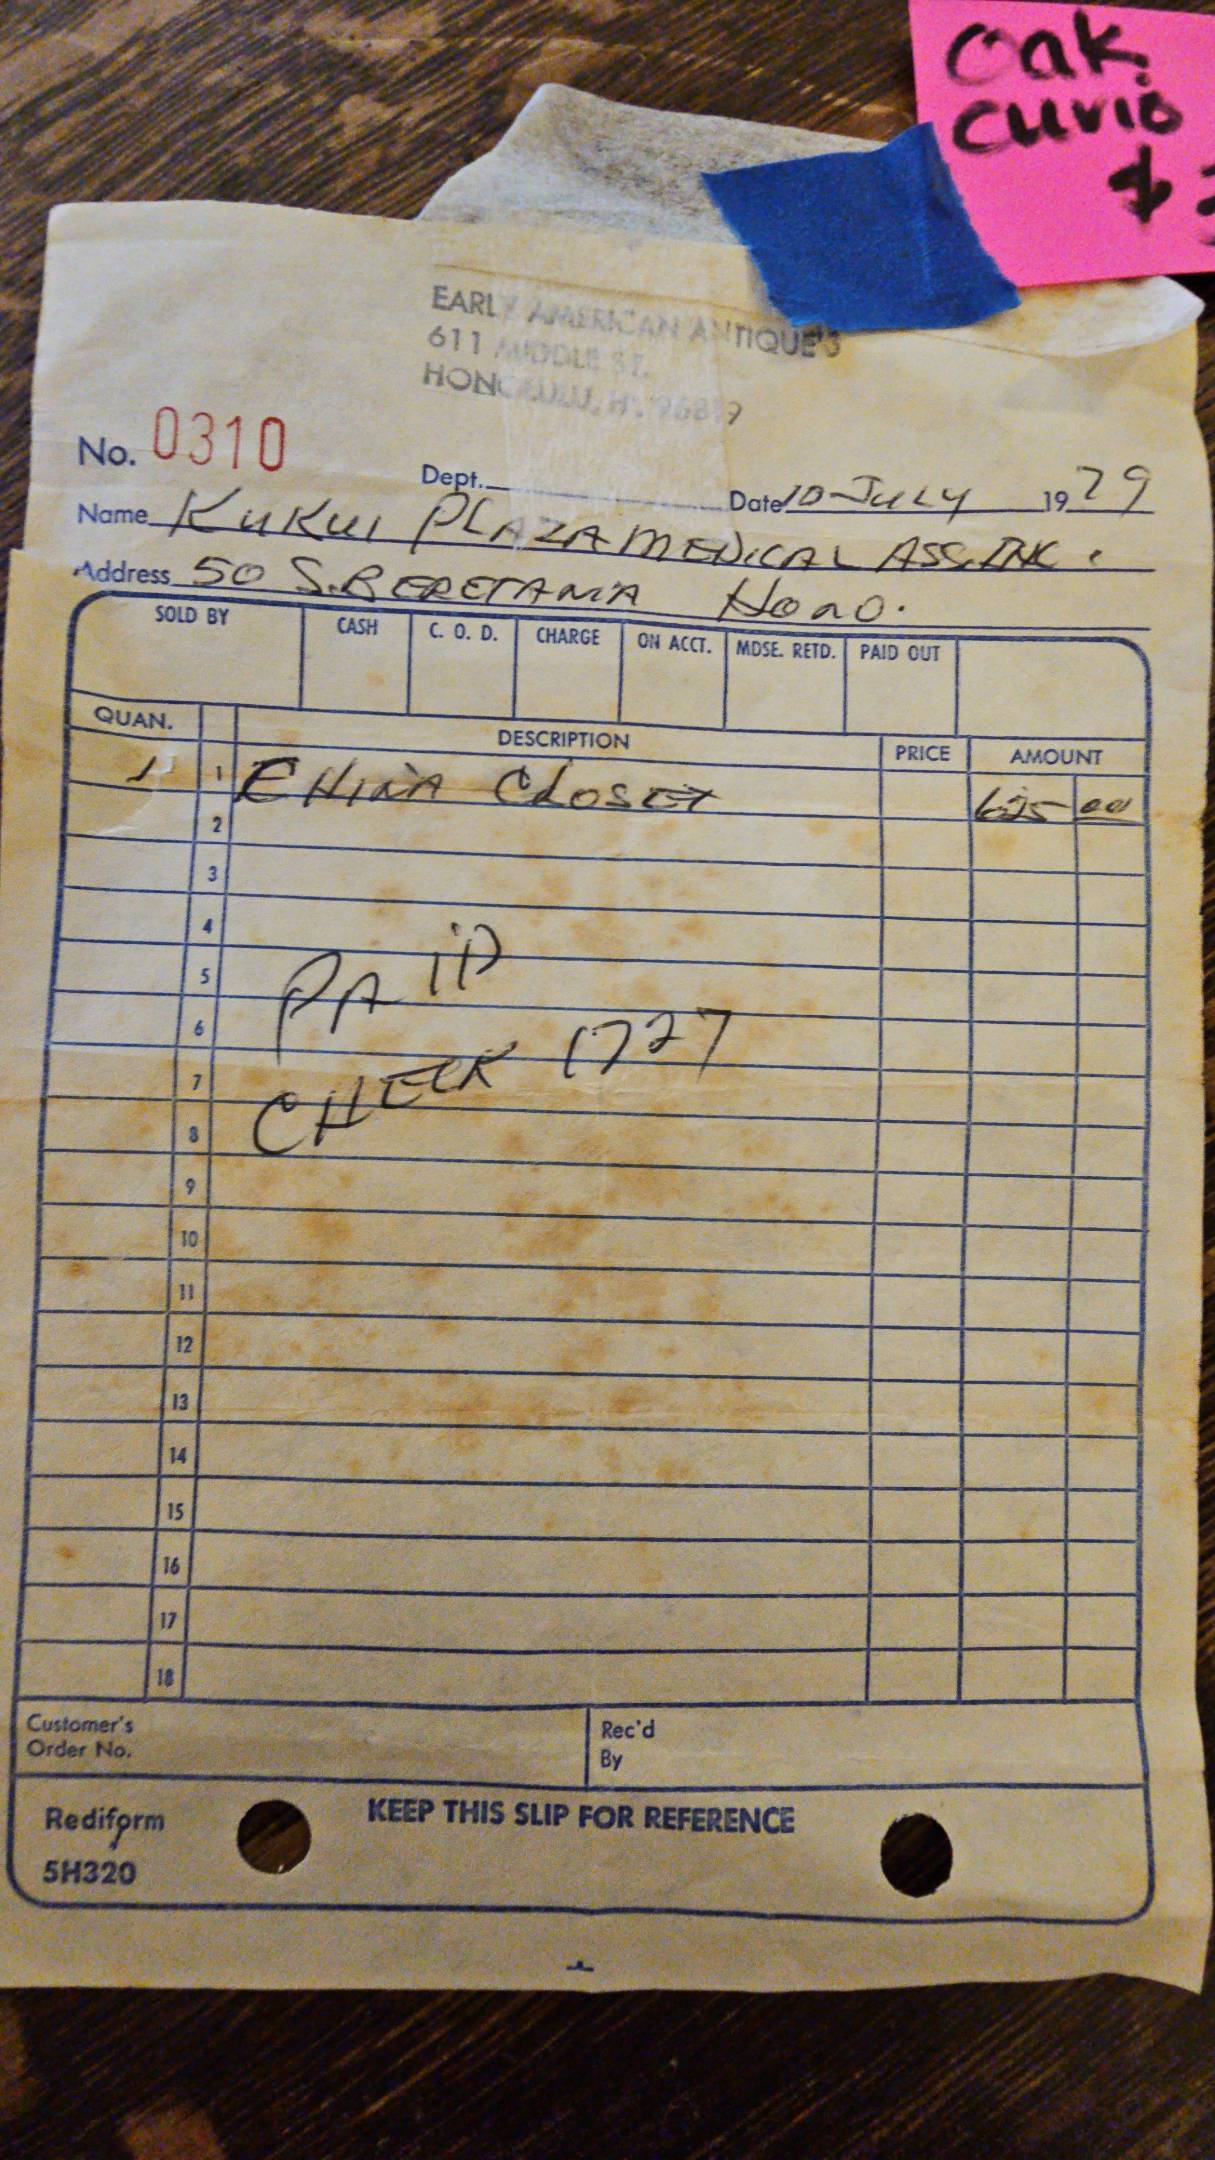 Oak
Curio
$
EARLY AMERICAN ANTIQUE'S
611 MIDDLE ST.
HONOLULU, HI. 96819
No. 0310
Dept. Date 10-July 1979
Name Kukui PLAZA MEDICAL ASS. INC.
Address 50 S. BERETANIA Hono.
SOLD BY CASH C. O. D. CHARGE ON ACCT. MDSE. RETD. PAID OUT
QUAN. DESCRIPTION PRICE AMOUNT
1 1 CHINA CLOSET 625 00
2
3
4
5
PAID
6
CHECK 1727
7
8
9
10
11
12
13
14
15
16
17
18
Customer's
Order No.
Rec'd
By
Rediform
5H320
KEEP THIS SLIP FOR REFERENCE